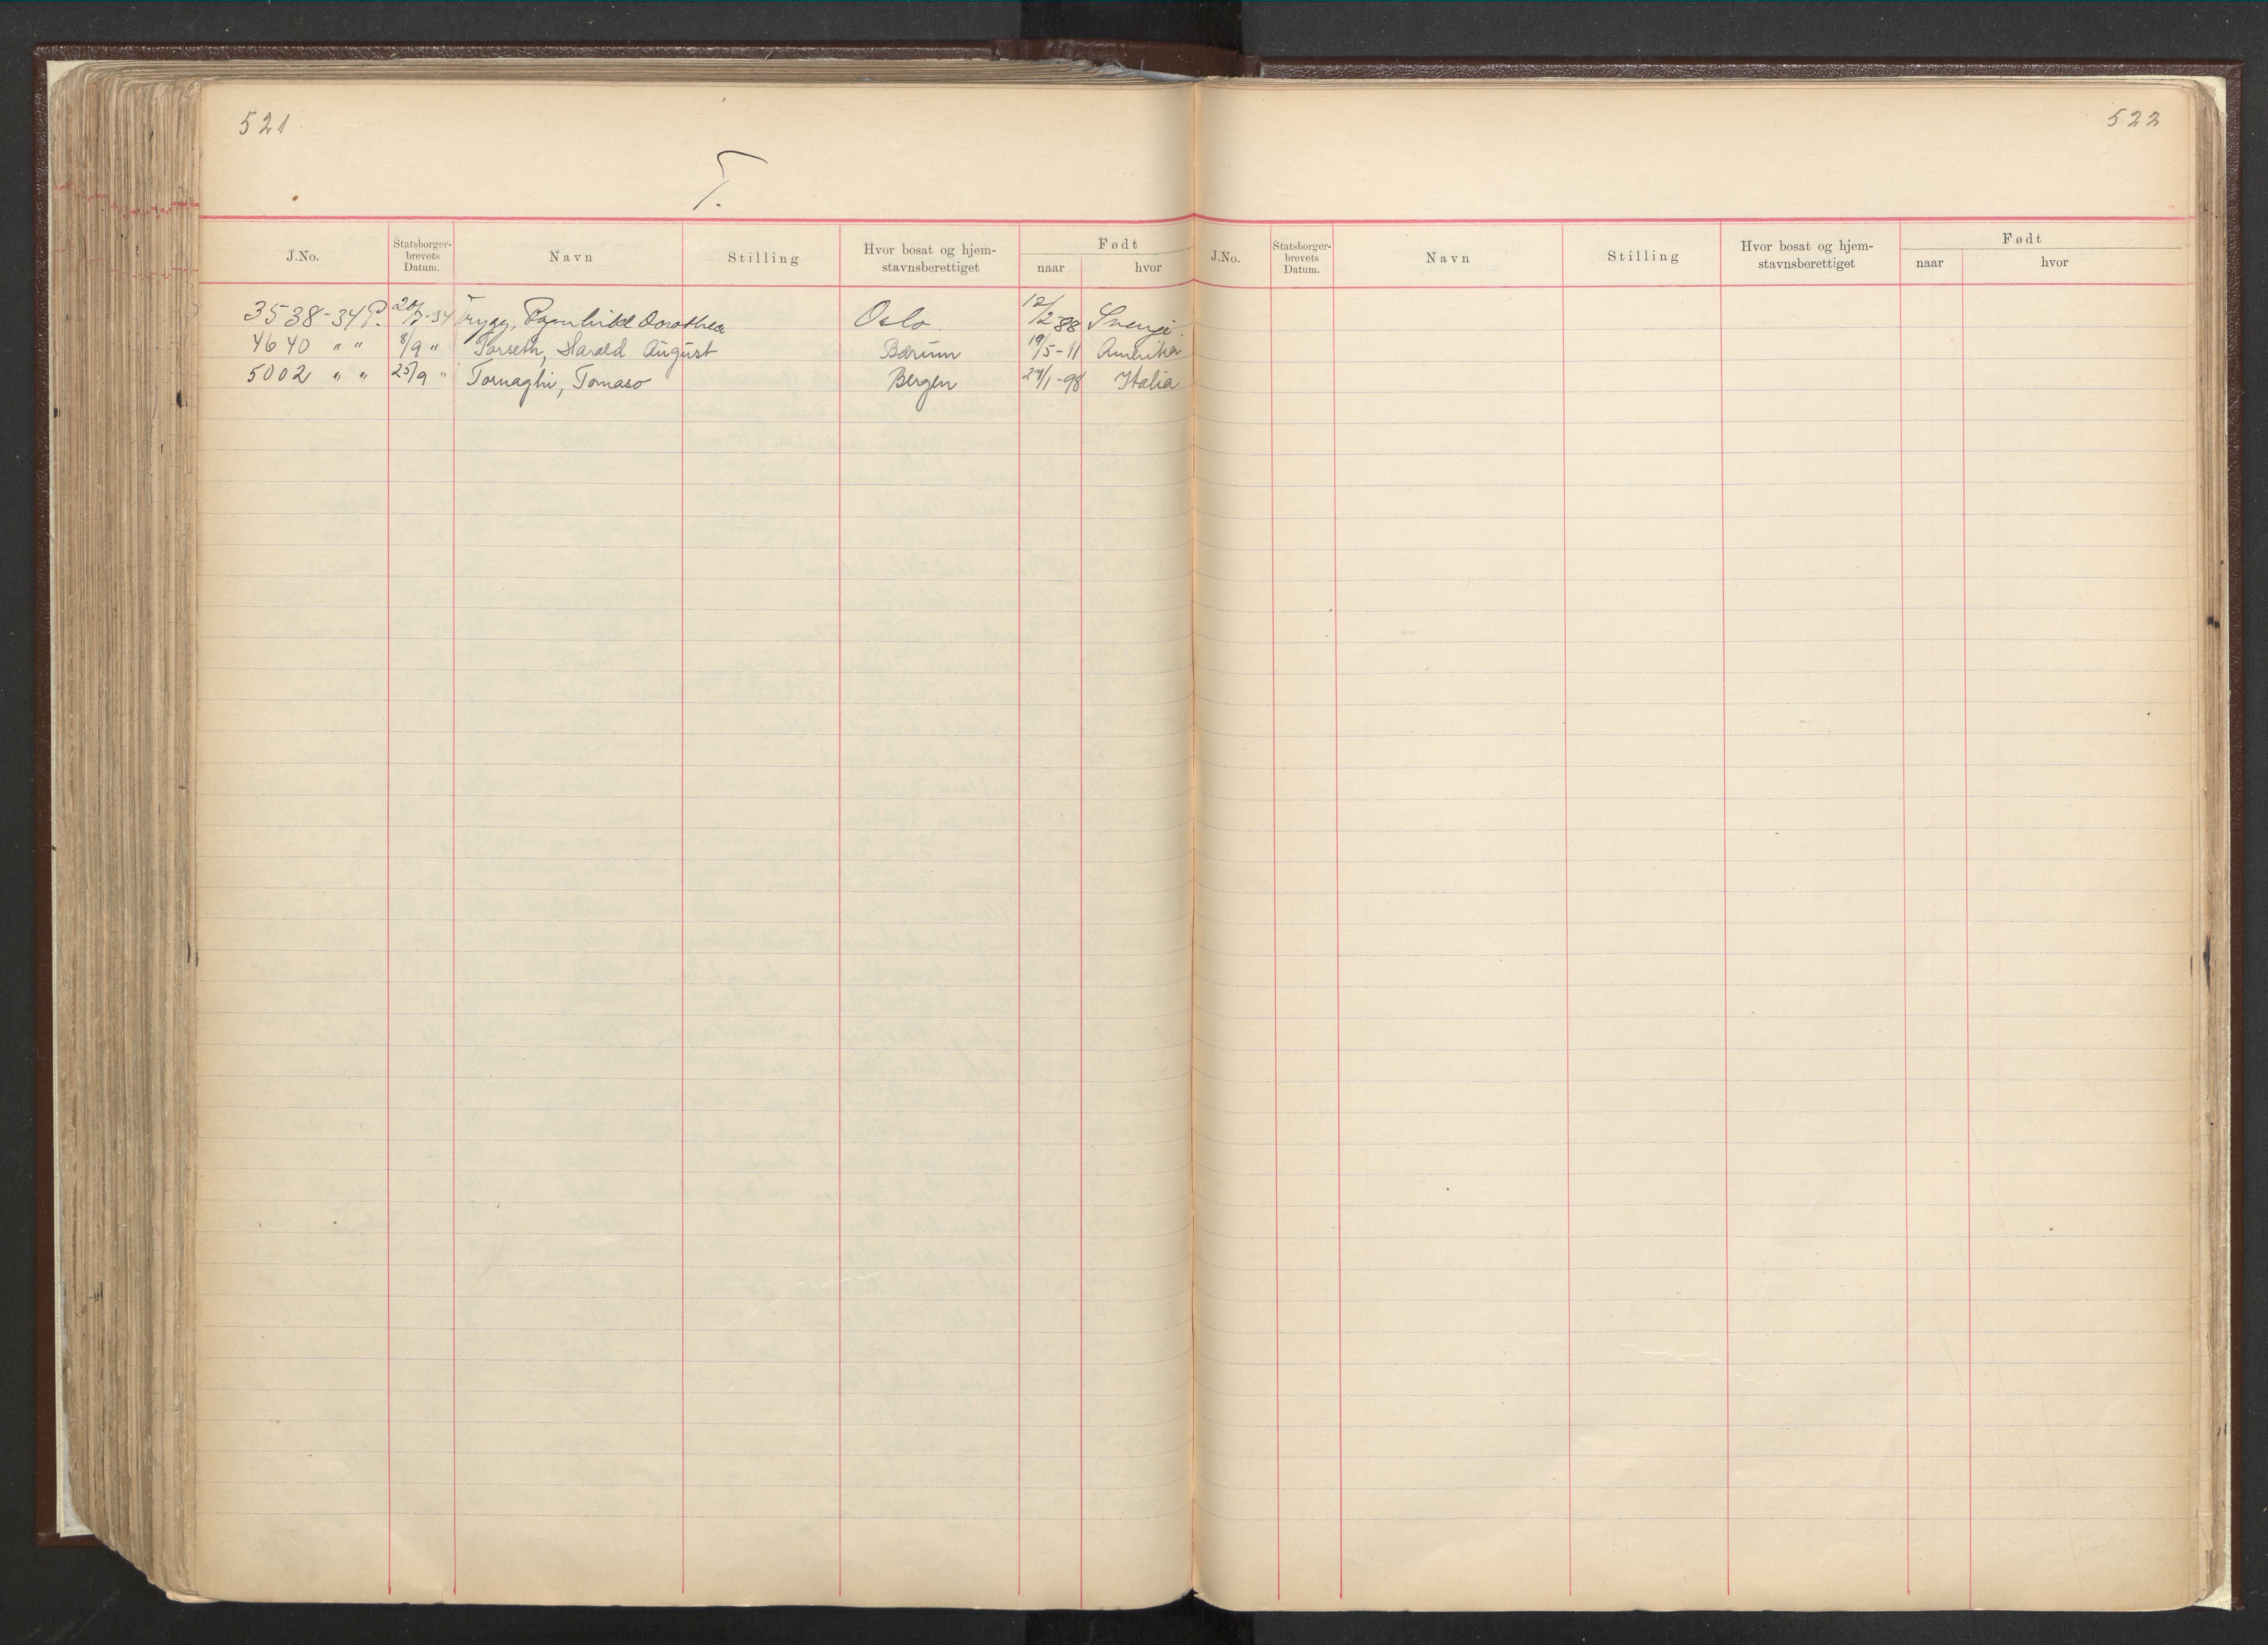 521
T.
J.No. Statsborger-brevets Datum. Navn Stilling Hvor bosat og hjem-stavnsberettiget Født naar hvor
3538-34 P. 20/7-34 Trygg, Ragnhild Dorothea Oslo. 12/2-88 Sverige.
4640 " " 8/9 " Torseth, Harald August Bærum 19/5-11 Amerika
5002 " " 25/9 " Tornaghi, Tomaso Bergen 27/1-98 Italia
522
J.No. Statsborger-brevets Datum. Navn Stilling Hvor bosat og hjem-stavnsberettiget Født naar hvor